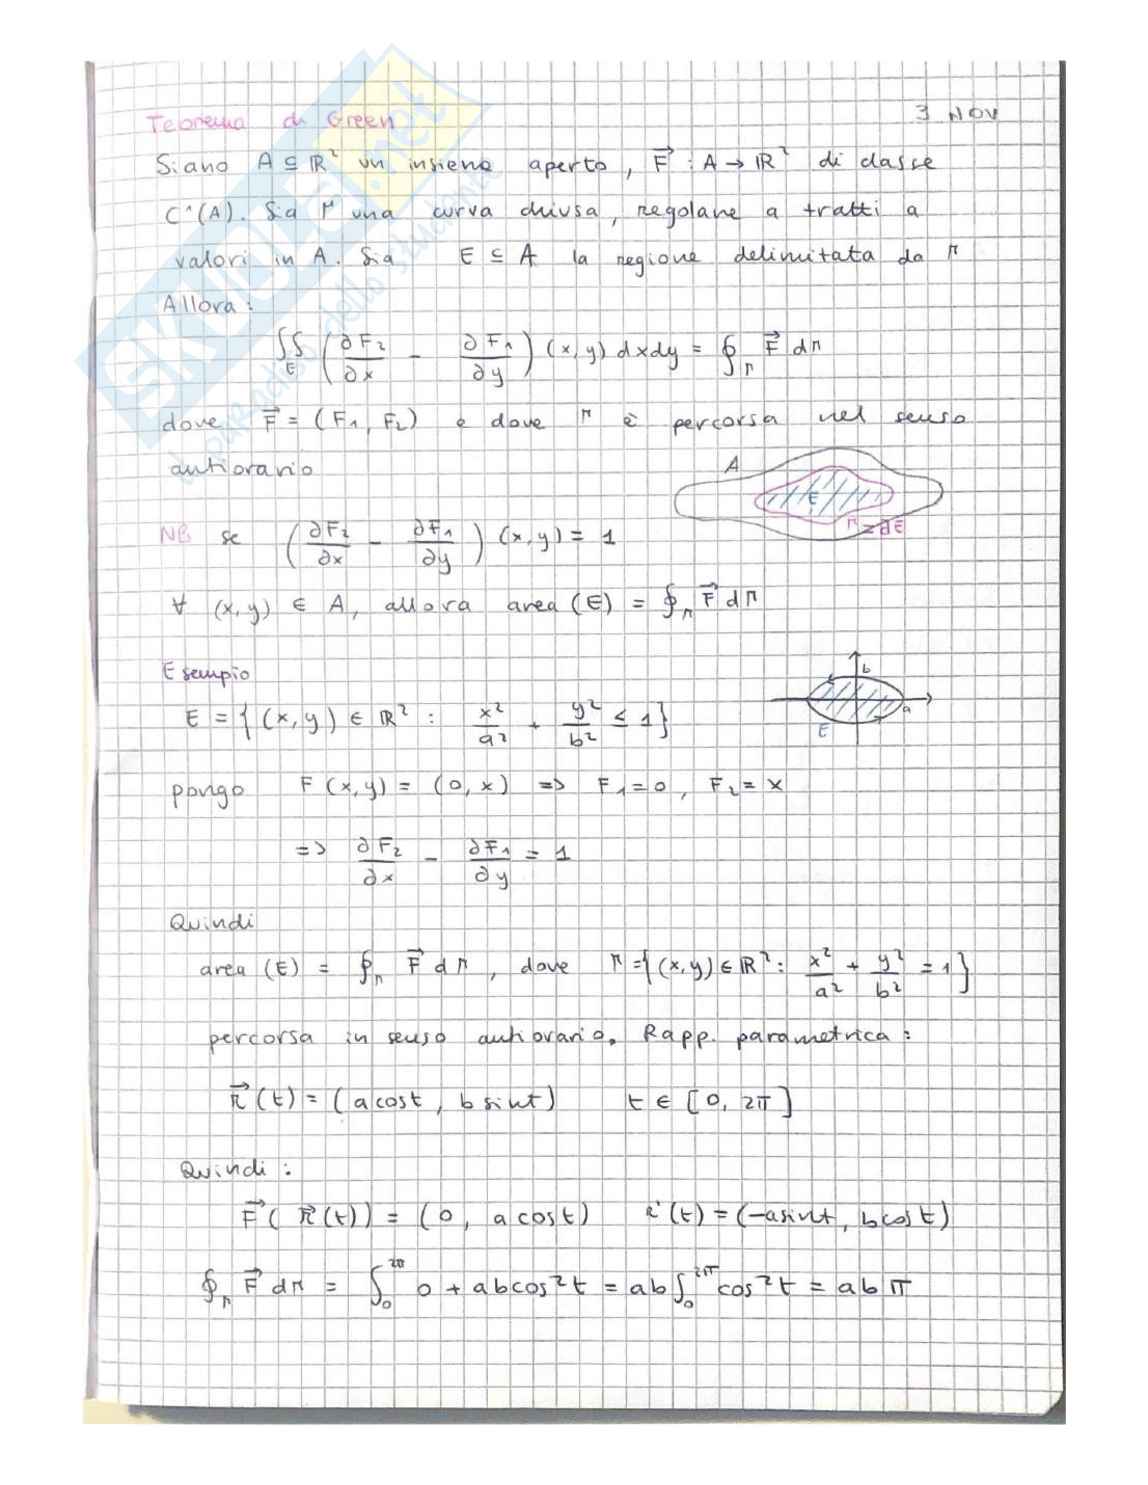 3 NOV
Teorema di Green
Siano A ⊆ ℝ² un insieme aperto, F⃗ : A → ℝ² di classe
C¹(A). Sia r una curva chiusa, regolare a tratti a
valori in A. Sia E ⊆ A la regione delimitata da r
Allora:
∬_E (∂F₂/∂x - ∂F₁/∂y) (x,y) dxdy = ∮_r F⃗ dr
dove F⃗ = (F₁, F₂) e dove r è percorsa nel senso
antiorario
A
E
r = ∂E
NB se (∂F₂/∂x - ∂F₁/∂y) (x,y) = 1
∀ (x,y) ∈ A, allora area (E) = ∮_r F⃗ dr
Esempio
E = {(x,y) ∈ ℝ² : x²/a² + y²/b² ≤ 1}
b
a
E
pongo F(x,y) = (0,x) => F₁=0, F₂=x
=> ∂F₂/∂x - ∂F₁/∂y = 1
Quindi
area (E) = ∮_r F⃗ dr, dove r={(x,y) ∈ ℝ² : x²/a² + y²/b² = 1}
percorsa in senso antiorario. Rapp. parametrica:
r⃗(t) = (a cost, b sint) t ∈ [0, 2π]
Quindi:
F⃗(r⃗(t)) = (0, a cost) r'(t) = (-a sint, b cost)
∮_r F⃗ dr = ∫₀^2π 0 + ab cos²t = ab ∫₀^2π cos²t = ab π
SKUOLA.net